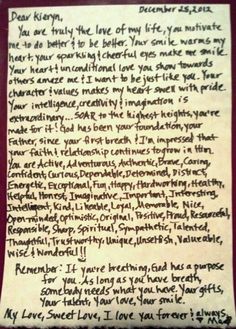 December 25, 2012
Dear Kieryn,
You are truly the love of my life, you motivate
me to do better & to be better. Your smile warms my
heart; your sparkling & cheerful eyes make me smile.
Your heart & unconditional love you show towards
others amaze me & I want to be just like you. Your
character & values makes my heart swell with pride.
Your intelligence, creativity & imagination is
extraordinary... SOAR to the highest heights, you're
made for it! God has been your foundation, your
Father, since your first breath & I'm impressed that
your faith & relationship continues to grow in Him.
You are Active, Adventurous, Authentic, Brave, Caring,
Confident, Curious, Dependable, Determined, Distinct,
Energetic, Exceptional, Fun, Happy, Hardworking, Healthy,
Helpful, Honest, Imaginative, Important, Interesting,
Intelligent, Kind, Likable, Loyal, Memorable, Nice,
Open-minded, Optimistic, Original, Positive, Proud, Resourceful,
Responsible, Sharp, Spiritual, Sympathetic, Talented,
Thoughtful, Trustworthy, Unique, Unselfish, Valueable,
Wise & Wonderful!!
Remember: If you're breathing, God has a purpose
for you. As long as you have breath,
somebody needs what you have. Your gifts,
Your talent, Your love, Your smile.
My Love, Sweet Love, I love you forever & always